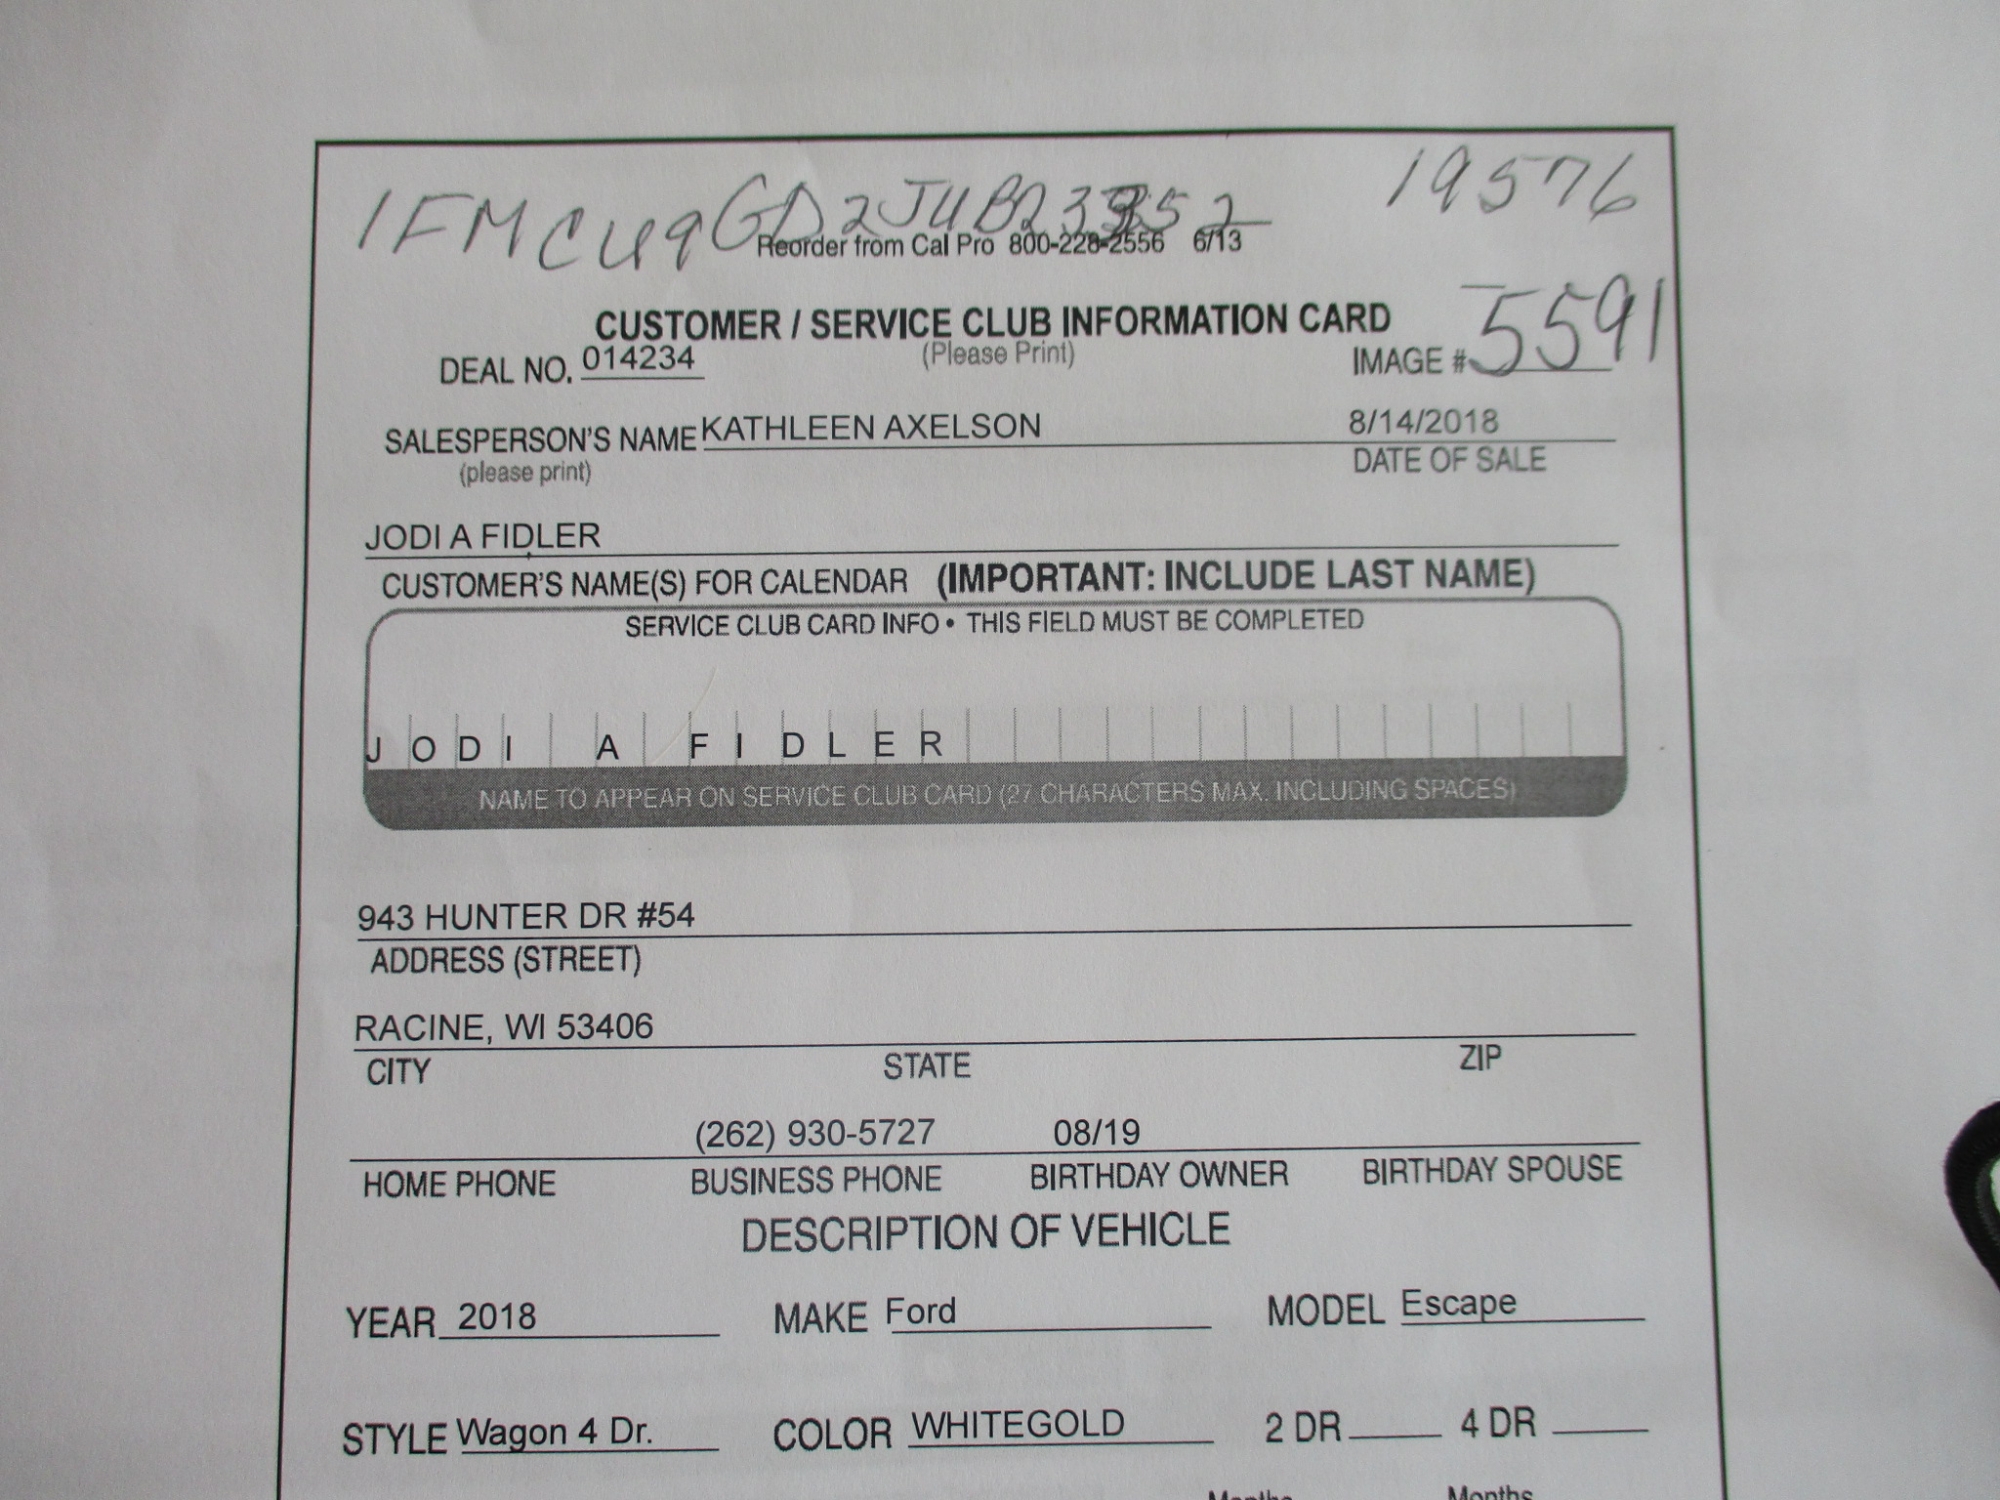 19576
Reorder from Cal Pro 800-228-2556 6/13
CUSTOMER / SERVICE CLUB INFORMATION CARD
(Please Print)
DEAL NO. 014234 IMAGE # 5591
SALESPERSON'S NAME KATHLEEN AXELSON 8/14/2018
(please print) DATE OF SALE
JODI A FIDLER
CUSTOMER'S NAME(S) FOR CALENDAR (IMPORTANT: INCLUDE LAST NAME)
SERVICE CLUB CARD INFO • THIS FIELD MUST BE COMPLETED
JODI A FIDLER
NAME TO APPEAR ON SERVICE CLUB CARD (27 CHARACTERS MAX. INCLUDING SPACES)
943 HUNTER DR #54
ADDRESS (STREET)
RACINE, WI 53406
CITY STATE ZIP
(262) 930-5727 08/19
HOME PHONE BUSINESS PHONE BIRTHDAY OWNER BIRTHDAY SPOUSE
DESCRIPTION OF VEHICLE
YEAR 2018 MAKE Ford MODEL Escape
STYLE Wagon 4 Dr. COLOR WHITEGOLD 2 DR 4 DR
Months Months